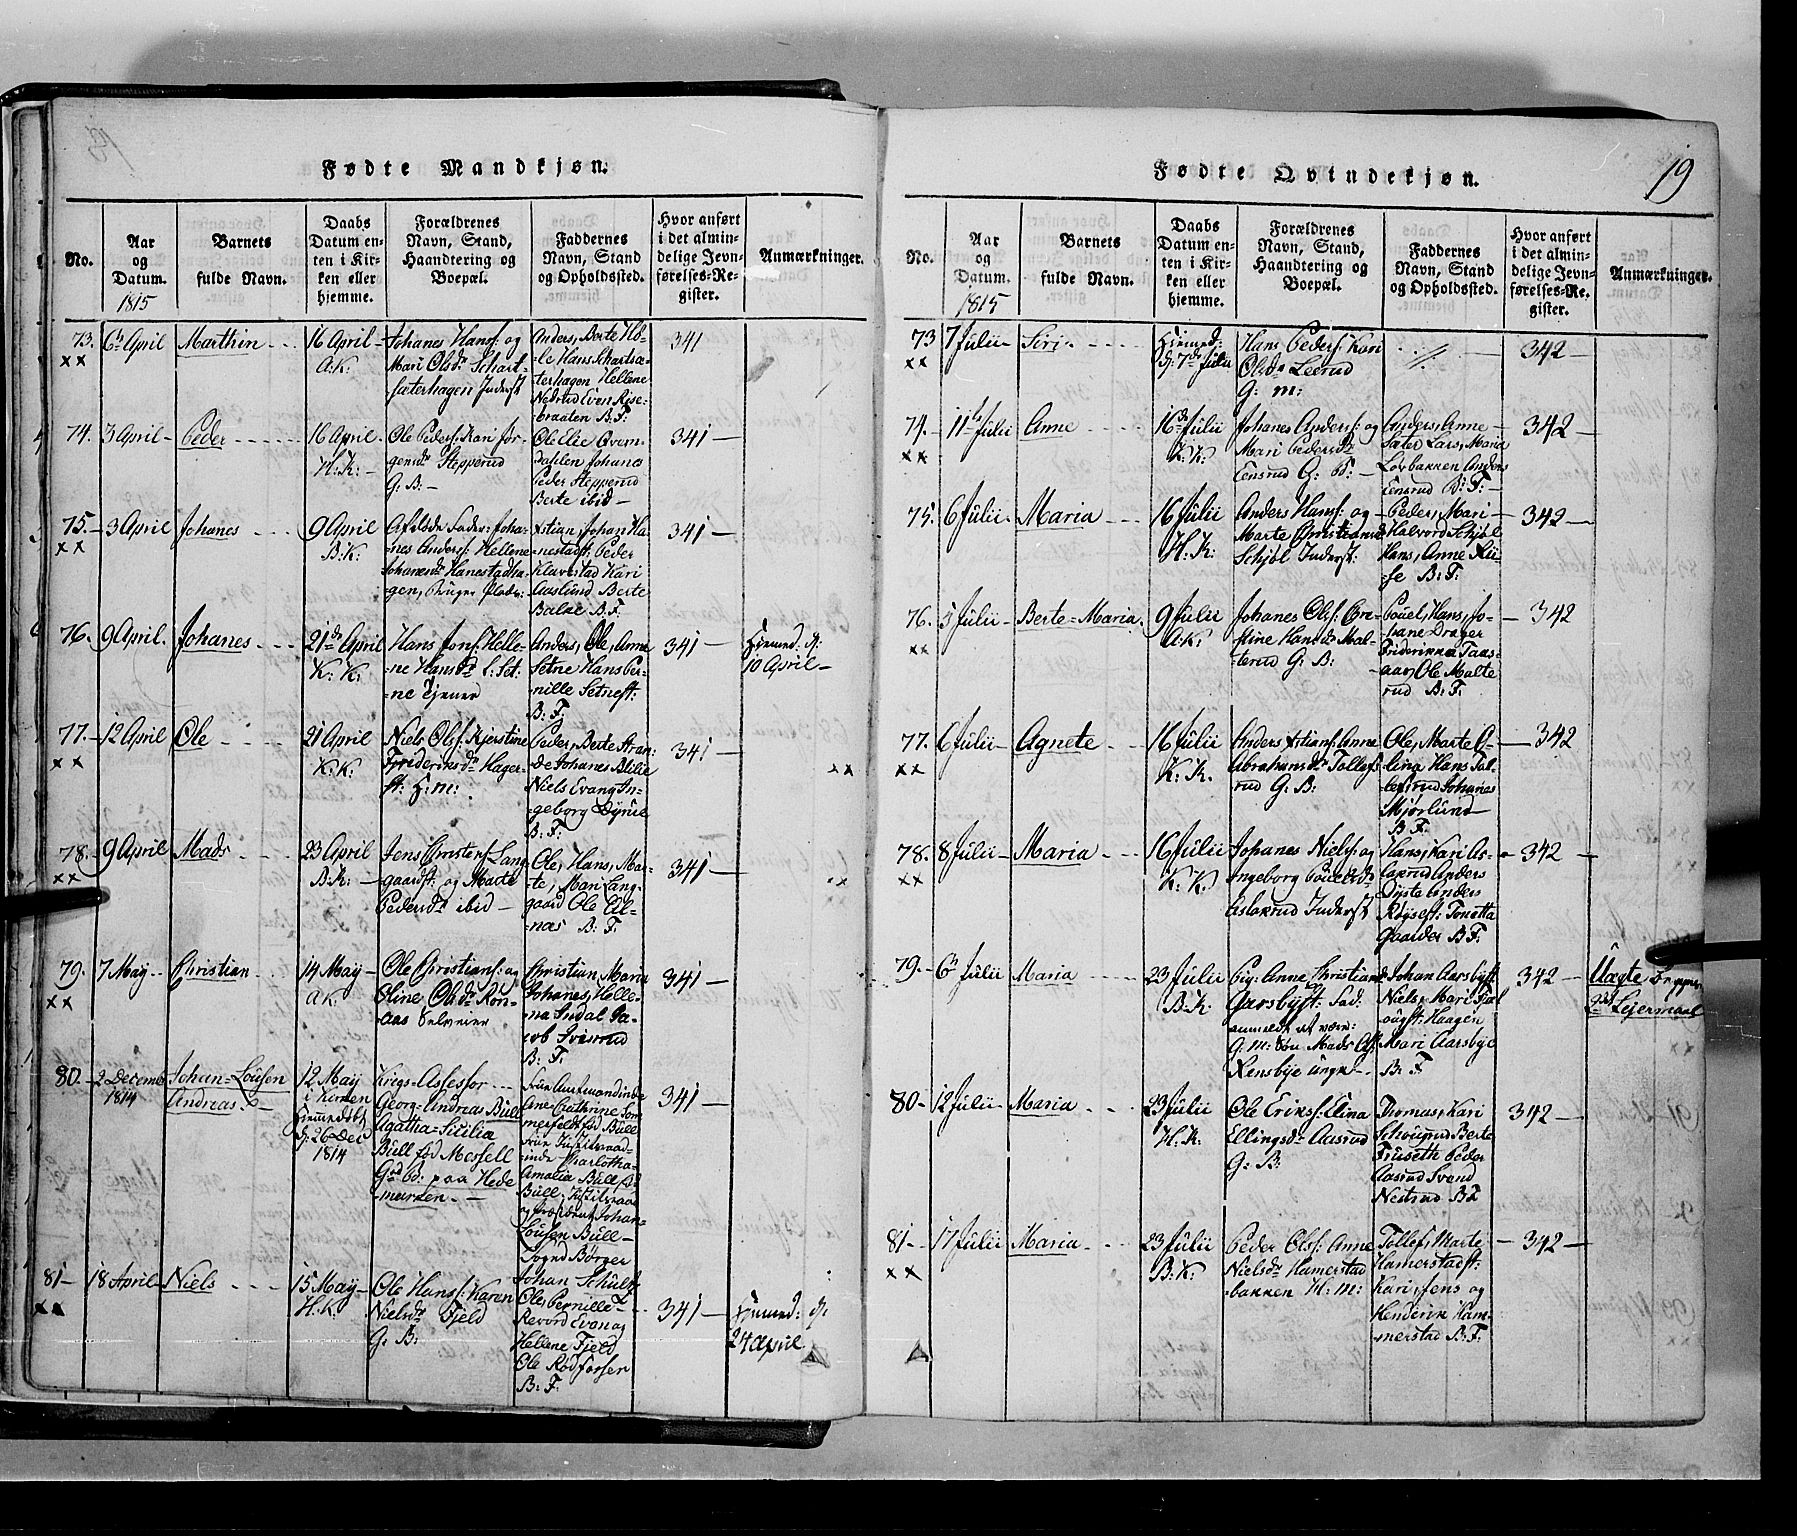 19
Fødte Mandkjøn.
No.
Aar
og
Datum.
1815
Barnets
fulde Navn.
Daabs
Datum en-
ten i Kir-
ken eller
hjemme.
Forældrenes
Navn, Stand,
Haandtering og
Boepæl.
Faddernes
Navn, Stand
og Opholdssted.
Hvor anført
i det almin-
delige Jevn-
førelses-Re-
gister.
Anmærkninger.
73.
6te April
Marthin
16 April
A:K:
Johanes Hans: og
Mari Olsdr Schart-
sæterhagen Inderst
Anders, Berte Ho-
le Hans Schartsæ-
terhagen Hellene
Nedrud Even Rise-
braaten B.F.
341
74.
3 April
Peder
16 April
H:K:
Ole Peders: Kari Jor-
gensdr Stepperud
G:B:
Ole Lie
dahlen Johanes
Peder Stepperud
Berte ibid
341
75.
3 April
Johanes
9 April
B:K:
Johanes Anders: Hellene
Johanesdr Hanestadha-
gen,
Xstian, Johan Ha-
nestadst: Peder
Klavestad Kari
Aaslund Berte
Balke B:F:
341
76.
9 April.
Johanes
21de April
K:K:
Hans Jons: Helle-
ne Hansdr S: Set-
ne Tjener
Anders, Ole, Anne
Setne Hans Per-
nille Setneft:
B:F:
341
Hjemmed: d:
10 April
77.
12 April
Ole
21 April
K:K:
Niels Ols: Kjerstine
Frideriksdr Hager-
st: H:m:
Peder, Berte Stran-
de Johanes Blilie
Niels Evang In-
geborg Dynne
B:F:
341
78.
9 April
Mads
23 April
B:K:
Jens Christens: Lang-
gaardst: og Marte
Pedersdr ibid
Ole, Hans, Mar-
te, Mari Lang-
gaard Ole Al-
næs B:F:
341
79.
7 May
Christian
14 May
A:K:
Ole Christians: og
Oline Olsdr Kor-
aas Selveier
Christian, Maria
Johanes, Helle-
na Indal Ja-
cob Sviserud
B:F:
341
80.
2 Decemb
1814
Johan-Lousen
Andreas
12 May
i Kirken
Hjemmedøbt
d: 26 Dec
1814
Krigs-Assessor
Georg-Andreas Bull
Agatha-Sicilia
Bull fød Messell
Grd Bd: paa Hede
marken
Frue Amtmandinde
Ane Cathrine Som
merfeldt fød Bull
Frue Justitsraad-
inde Charlotha-
Amalia Bull fd
Bull, Justitsraad
og Præsident Johan-
Lousen Bull
Sogned Børger
Johan Schult
341
81
18 April
Niels
15 May
H:K:
Ole Hans: Karen
Nielsdr Fjeld
G:B:
Ole, Pernille
Revord Evan og
Hellene Fjeld
Ole Rødforsen
B:F:
341
Hjemmed: d:
24 April
Fødte Qvindekjøn.
No.
Aar
og
Datum.
1815
Barnets
fulde Navn.
Daabs
Datum en-
ten i Kir-
ken eller
hjemme.
Forældrenes
Navn, Stand,
Haandtering og
Boepæl.
Faddernes
Navn, Stand
og Opholdssted.
Hvor anført
i det almin-
delige Jevn-
førelses-Re-
gister.
Anmærkninger.
73
7 Julii
Siri
Hjemmed:
d: 7de Julii
Hans Peders: Kari
Olsdr Leerud
G: m:
342
74.
11te Julii
Anne
16de Julii
K:K:
Johanes Anders: og
Mari Pedersdr
Eensrud G: B:
Anders, Anne
Sæter Lars, Maria
Lovbakken Anders
Eensrud B:F:
342
75.
6 Julii
Maria
16 Julii
H:K:
Anders Hans: og
Marte Christiansd
Schjøl Inderst:
Peder, Mari
Halvord Schjøl
Hans, Anne Rii-
se B:F:
342
76.
5 Julii
Berte-Maria
9 Julii
A:K:
Johanes Ols: Chre-
stine Hansdr Mal-
terud G: B:
Pouel, Hans, Jo-
hane Drager
Friderikka Taas-
aas Ole Malte
rud B:F:
342
77.
6 Julii
Agnete
16 Julii
K:K.
Anders Xstians: Anne
Abrahamsdr Tollefs
rud G: B:
Ole, Marte A-
lina Hans Tol-
lefsrud Johanes
Mjørlund
B:F:
342
78.
8 Julii
Maria
16 Julii
K:K.
Johanes Niels: og
Ingeborg Pouelsdr
Aslakrud Inderst
Hans, Kari As-
lakrud Anders
Dyste Anders
Røiseft: Tonetta
Gaarder B:F:
342
79.
6te Julii
Maria
23 Julii
B:K
Pig: Anne Christiansd
Aarsbyst: Fad:
anmeldt at være:
G:m: Søn Mads Ol:
Rensbye ungk
Johan Aarsbyst
Niels, Mari Fjæl
ougst: Haagen
Mari Aarsbye
B:F:
342
Uægte Begges
2det Lejermaal
80
12 Julii
Maria
23 Julii
H:K:
Ole Eriks: Elina
Ellingsdr Aasrud
G: B:
Thomas, Kari
Schougrud Berte
Fruseth Peder
Aasrud Svend
Nestrud BF
342
81
17 Julii
Maria
23 Julii
B:K:
Peder Ols: Anne
Nielsdr Hamerstad
bakken H:m:
Tollef, Marte
Hamerstadst:
Kari, Jens og
Henderik Ham-
merstad B:F:
342